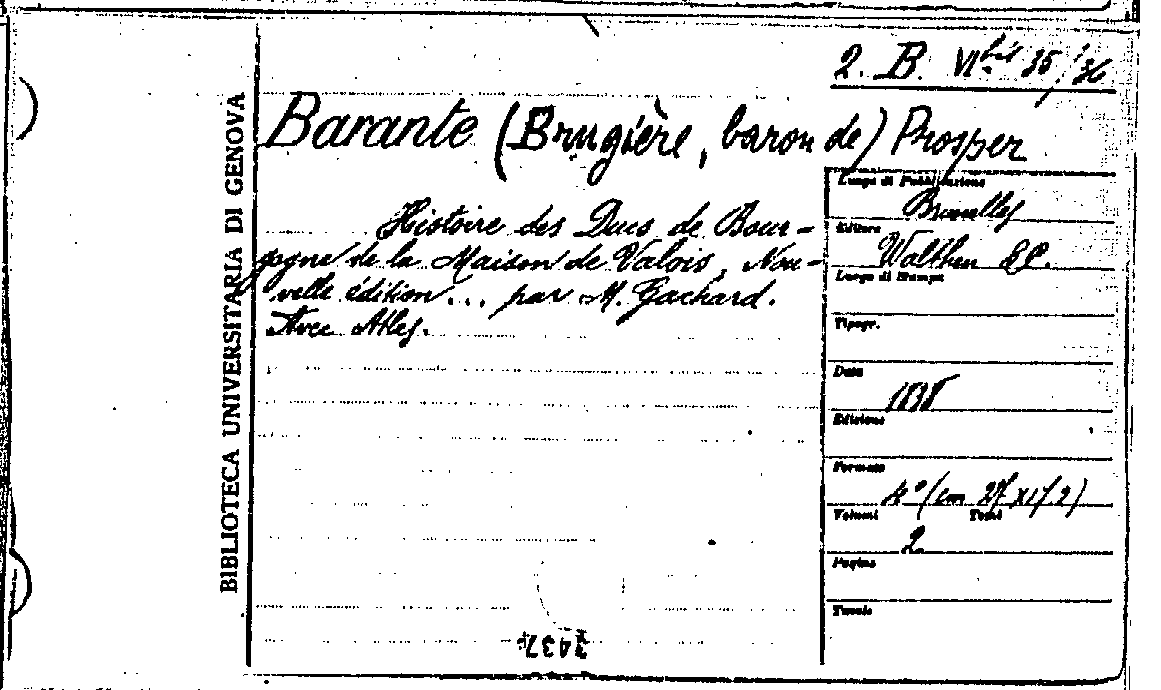 2. B. VI 35/36
Barante (Brugière, baron de) Prosper
Histoire des Ducs de Bour-
gogne de la Maison de Valois, Nou-
velle édition... par M. Gachard.
Avec Atlas.
BIBLIOTECA UNIVERSITARIA DI GENOVA
Luogo di Pubblicazione
Bruxelles
Editore
Luogo di Stampa
Tipogr.
Data
1838
Edizione
Formato
4° (cm
Volumi Tomi
2
Pagine
Tavole